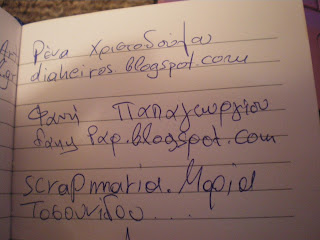 Ρένα Χριστοδούλου
diaheiros.blogspot.com
Φανή Παπαγεωργίου
fanypap.blogspot.com
scrapmaria. Μαρία
Τοσουνίδου....